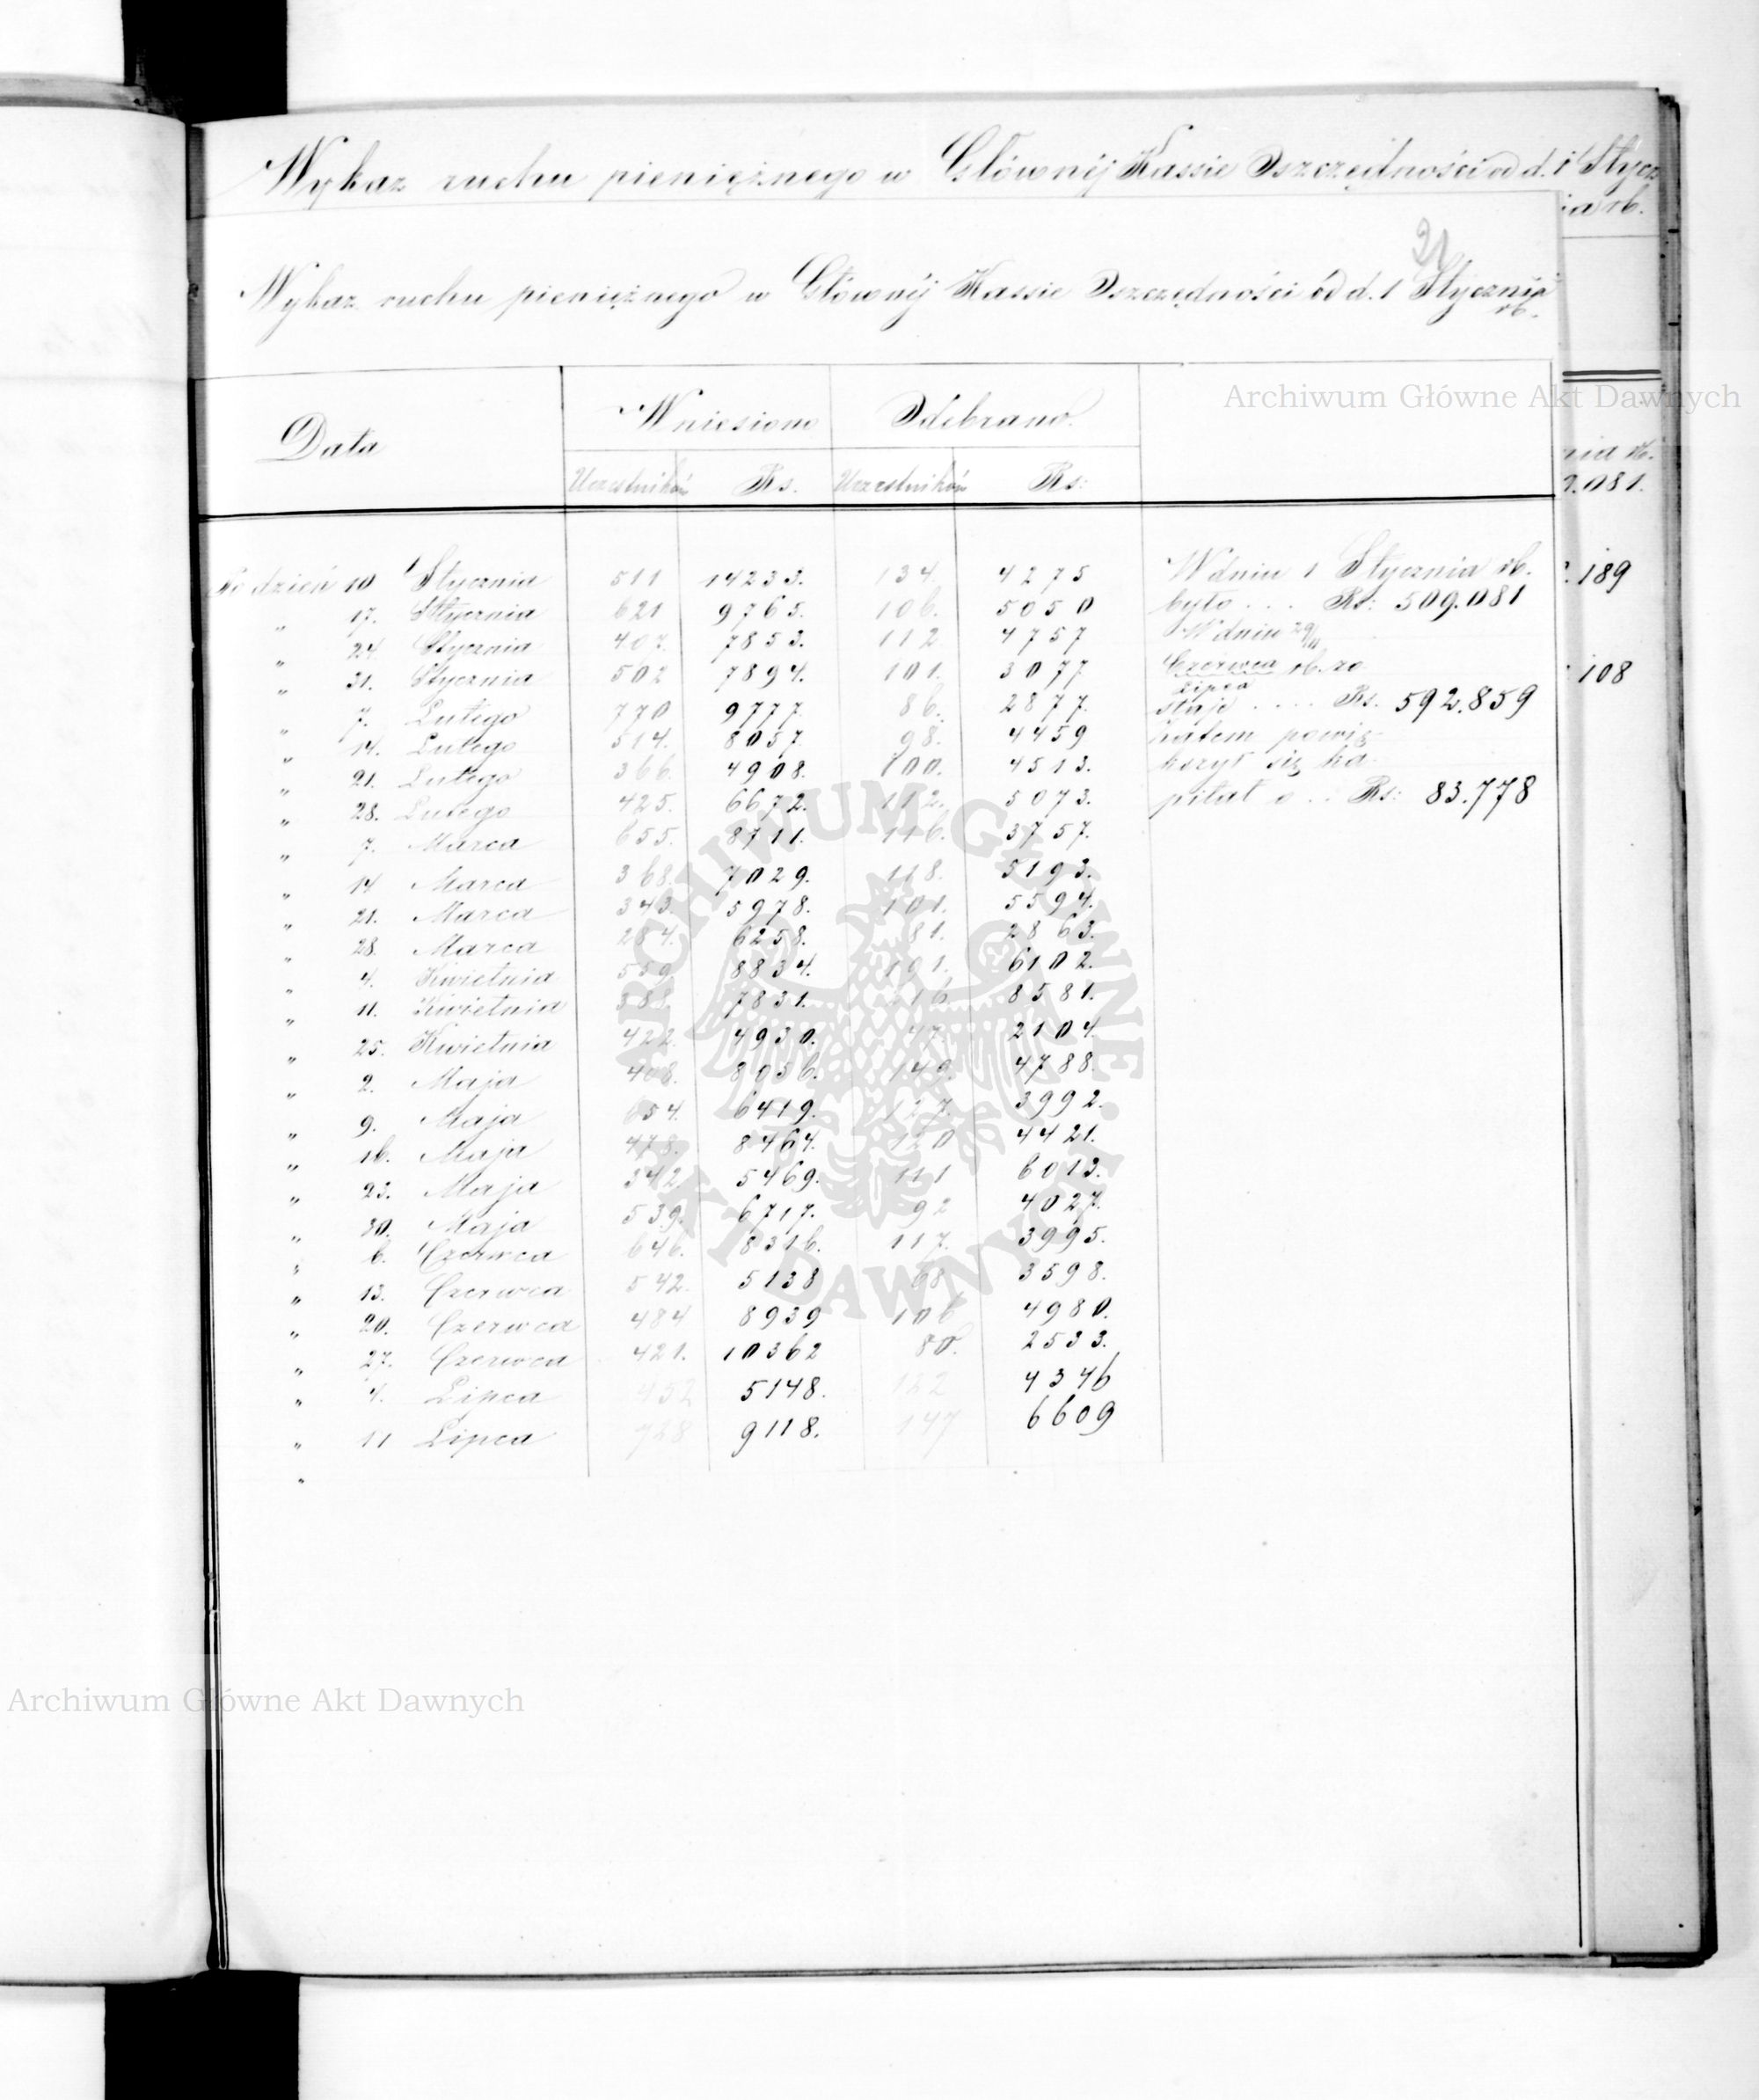 Wykaz ruchu pieniężnego w Głównéj Kassie Oszczędności od d. 1 Stycz
ia rb.
21
Wykaz ruchu pieniężnego w Głównéj Kassie Oszczędności od d. 1 Stycznia
rb.
Archiwum Główne Akt Dawnych
Data Wniesiono Odebrano
Uczestników Rs. Uczestników Rs:
nia rb.
9.081.
Po dzień 10 Stycznia 511 14233. 134. 4275 W dniu 1 Stycznia rb.
189
„ 17. Stycznia 621 9765. 106. 5050 było . . . Rs: 509.081
„ 24 Stycznia 407. 7853. 112 4757 W dniu 29/11
„ 31. Stycznia 502 7894. 101. 3077 Czerwca rb. zo
Lipca
108
„ 7. Lutego 770 9777. 86. 2877. staje . . . . Rs. 592.859
„ 14. Lutego 514. 8057. 98. 4459 zatem powię-
„ 21. Lutego 366. 4908. 100. 4513. kszył się ka-
„ 28. Lutego 425. 6672. 112. 5073. pitał o . . Rs: 83.778
„ 7. Marca 655. 8711. 116. 3757.
„ 14 Marca 368. 7029. 118. 5193.
„ 21. Marca 343. 5978. 101. 5594.
„ 28. Marca 284. 6258. 81. 2863.
„ 4. Kwietnia 559 8834. 191. 6102.
„ 11. Kwietnia 7831. 8581.
„ 25. Kwietnia 422. 4930. 47. 2104.
„ 2. Maja 408. 8056. 149. 4788.
„ 9. Maja 654. 6419. 127. 3992.
„ 16. Maja 478. 8464. 120 4421.
„ 23. Maja 342. 5469. 111 6013.
„ 30. Maja 539. 6717. 92 4027.
„ 6. Czerwca 646. 8316. 117. 3995.
„ 13. Czerwca 542. 5138 68 3598.
„ 20. Czerwca 484 8939 106 4980.
„ 27. Czerwca 421. 10362 80. 2533.
„ 4. Lipca 452 5148. 122 4346
„ 11 Lipca 728 9118. 147 6609
„
ARCHIWUM GŁÓWNE AKT DAWNYCH
Archiwum Główne Akt Dawnych